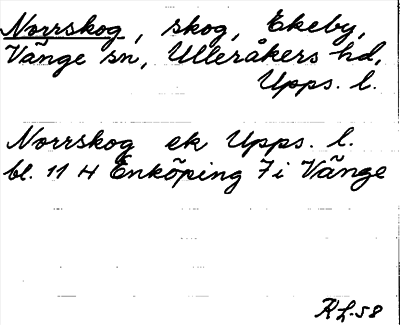 Norrskog, skog, Ekeby,
Vänge sn, Ulleråkers hd,
Upps. l.
Norrskog ek Upps. l.
bl. 11 H Enköping 7i Vänge
RL-58